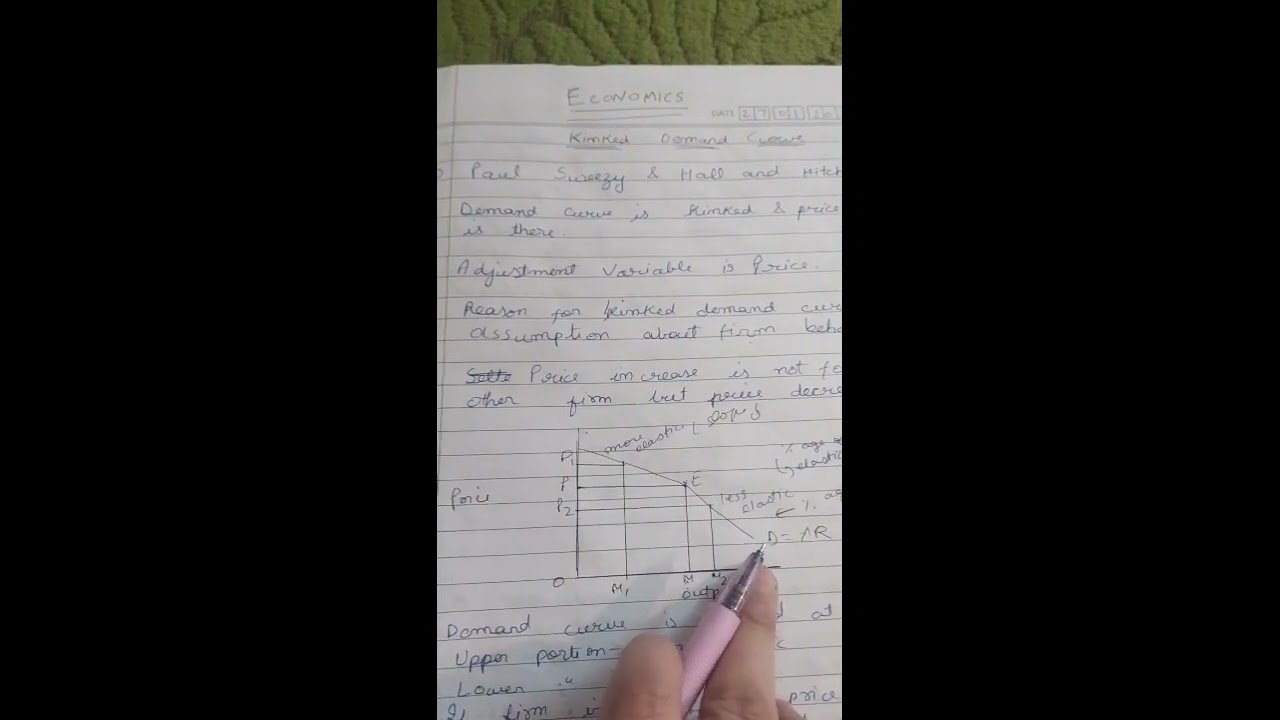 ECONOMICS
DATE 27 01 20
Kinked Demand Curve
Paul Sweezy & Hall and Hitch
Demand curve is kinked & price
is there.
Adjustment variable is Price.
Reason for kinked demand cur
assumption about firm beh
Price increase is not fo
other firm but price decre
more elastic
% age
elastic
P1
P
E
less elastic
P2
Price
% ag
D = AR
O
M1
M
M2
outp
Demand curve is at
Upper portion-
Lower "
If firm i price